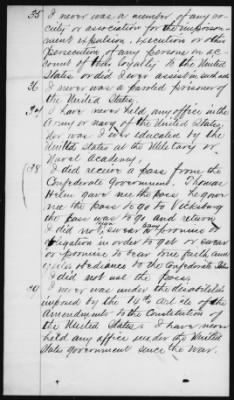 35 I never was a member of any so-
ciety or association for the imprison-
ment expulsion, execution or other
persecution of any persons on ac
count of their loyalty to the United
States or did I ever assist in such acts
36 I never was a paroled prisoner of
the United States.
37 I have never held any office in the
Army or navy of the United States,
Nor was I ever educated by the
United States at the Military or
Naval Academy.
(38 I did receive a pass from the
Confederate Government. Thomas
Helm gave me the pass He gave
me the pass to go to Vicksburg
the pass was to go and return
I did not swear or promise
obligation in order to get or swear
or promise to bear true faith and
yield obedience to the Confederate
I did not use the pass
I never was under the disabilities
imposed by the 14th Article of the
Amendments to the Constitution of
the United States. I have never
held any office under the United
States government since the war.